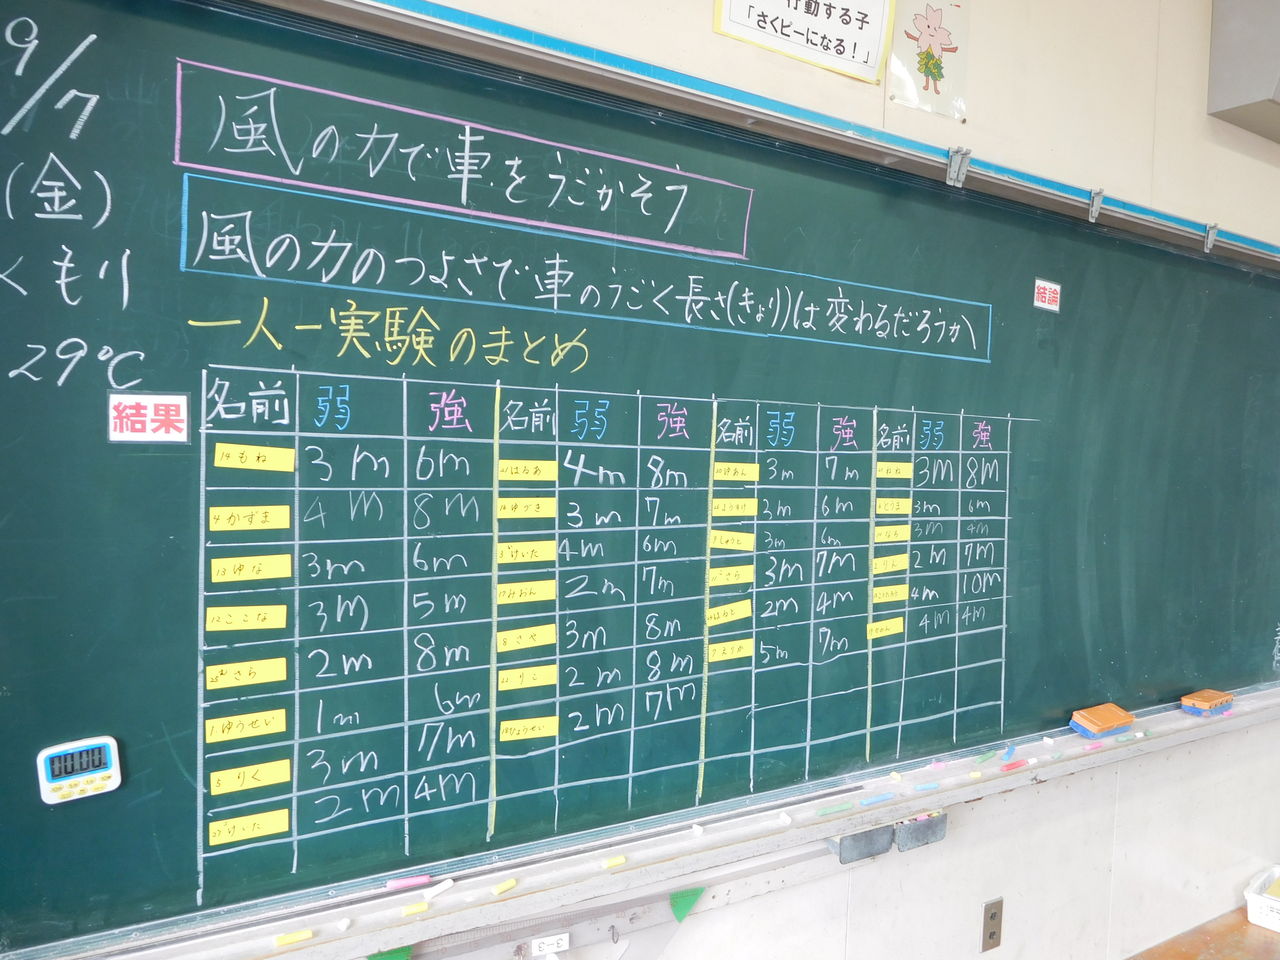 行動する子
「さくピーになる！」
9/7
(金)
くもり
29℃
風の力で車をうごかそう
風の力のつよさで車のうごく長さ(きょり)は変わるだろうか
一人一実験のまとめ
結論
結果
名前 弱 強 名前 弱 強 名前 弱 強 名前 弱 強
14 もね 3m 6m
4 かずま 4m 8m
13 ゆな 3m 6m
12 ここな 3m 5m
さら 2m 8m
1 ゆうせい 1m 6m
5 りく 3m 7m
けいた 2m 4m
はるあ 4m 8m
ゆづき 3m 7m
けいた 4m 6m
みおん 2m 7m
8 さや 3m 8m
りこ 2m 8m
りょうせい 2m 7m
ゆあん 3m 7m
3m 6m
しゅうと 3m 6m
さら 3m 7m
2m 4m
えりか 5m 7m
ねね 3m 8m
とうま 3m 6m
3m 4m
りん 2m 7m
4m 10m
4m 4m
00:00
3-3